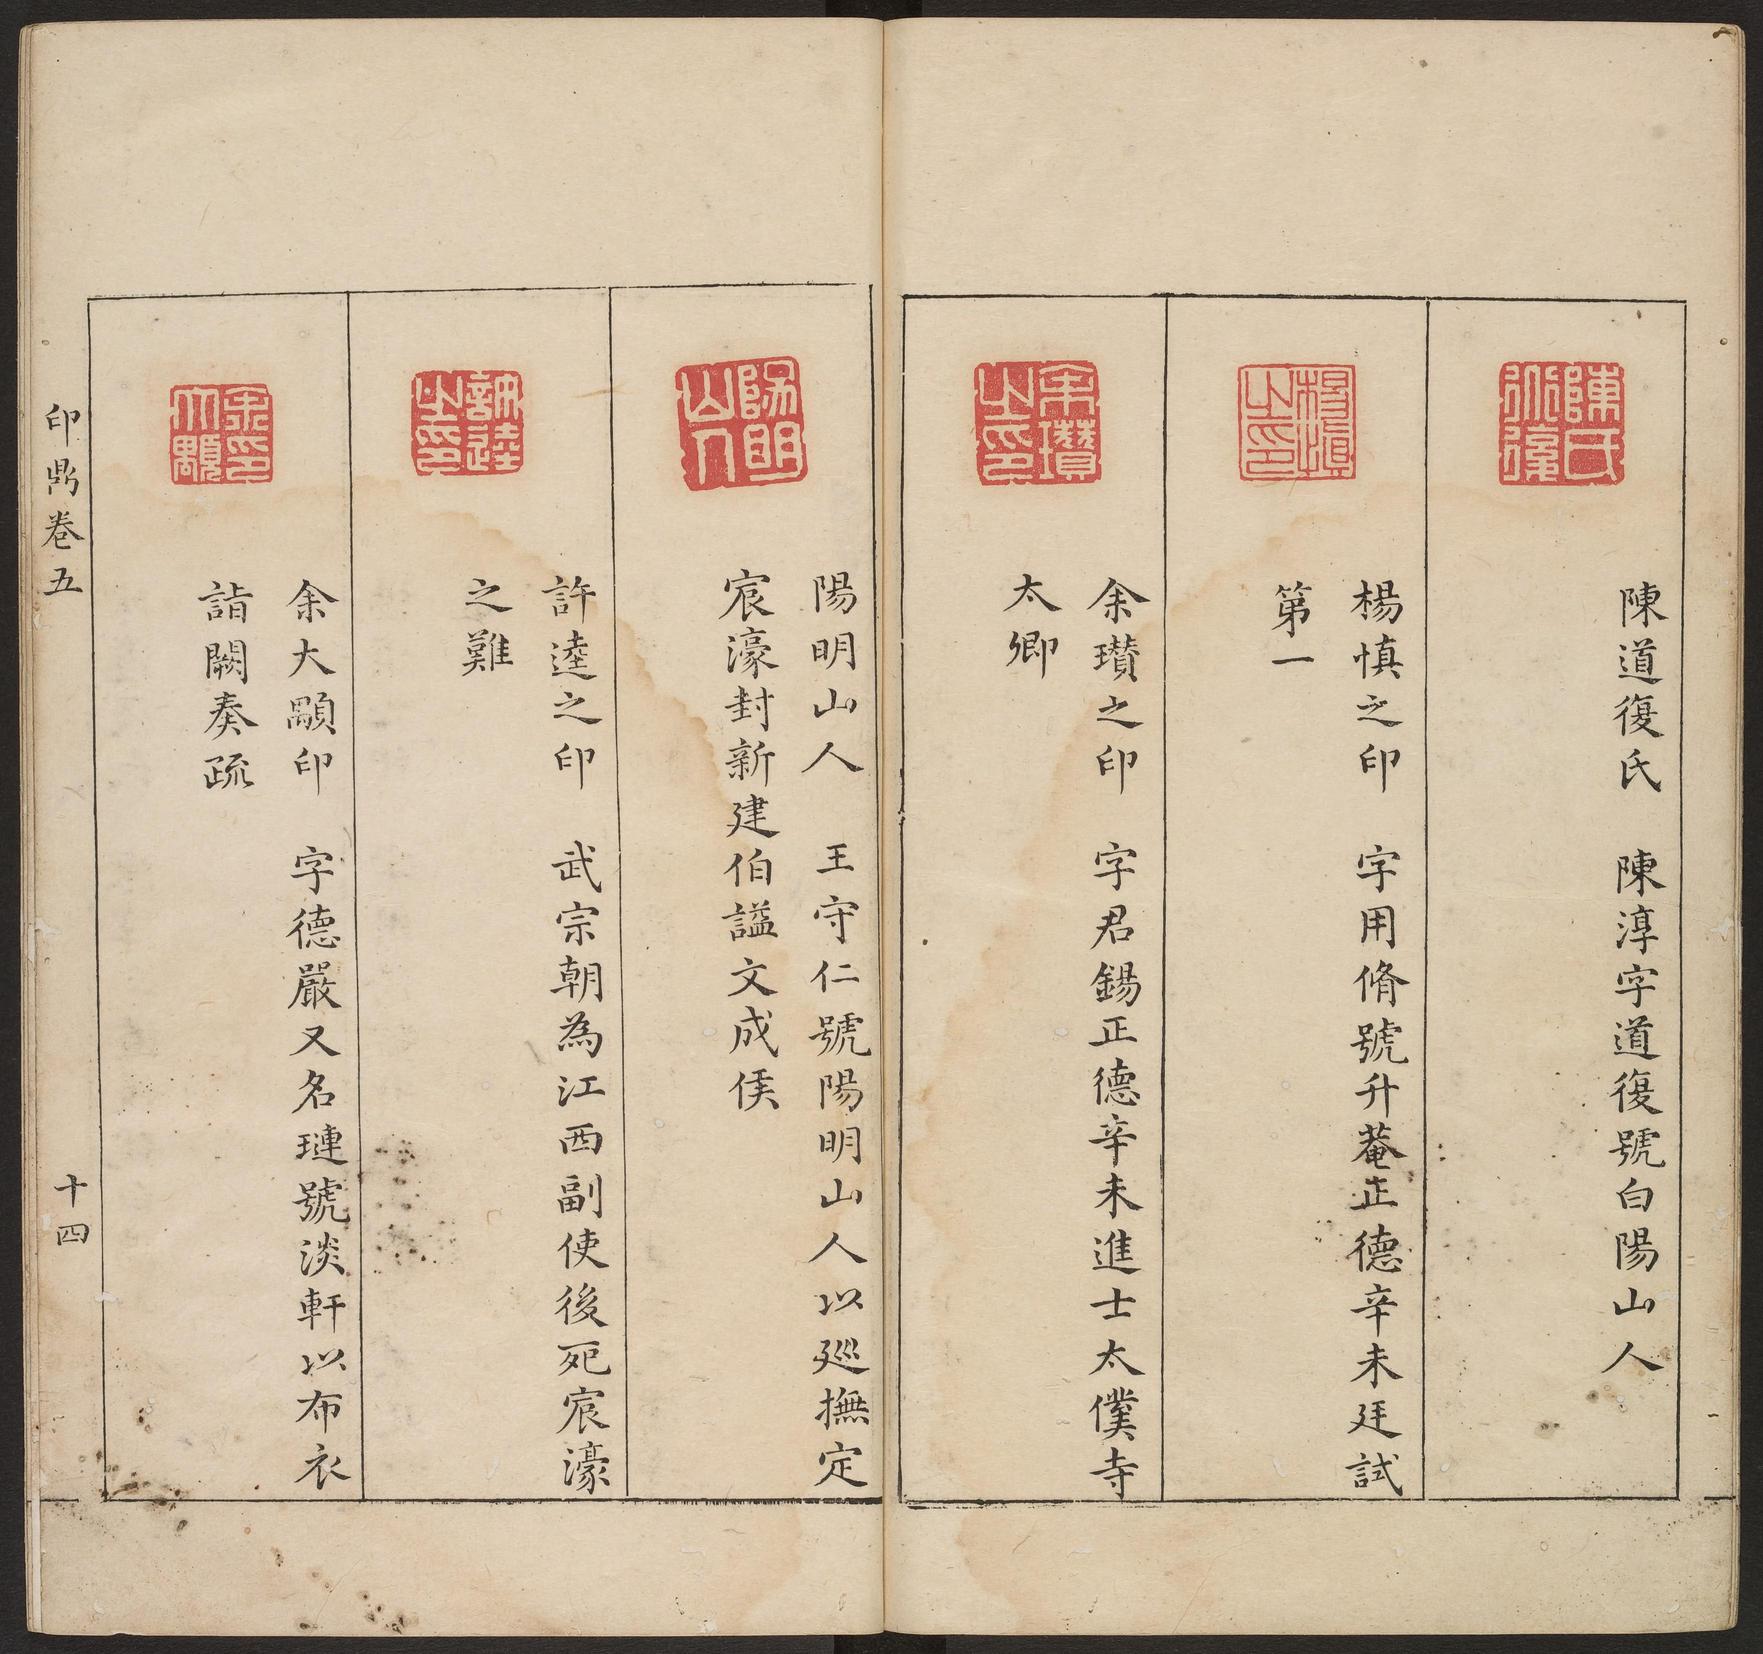 陳道復氏　陳淳字道復號白陽山人
楊慎之印　字用脩號升菴正德辛未廷試
第一
余瓚之印　字君錫正德辛未進士太僕寺
太卿
陽明山人　王守仁號陽明山人以廵撫定
宸濠封新建伯謚文成侯
許逵之印　武宗朝為江西副使後死宸濠
之難
余大顒印　字德嚴又名璉號淡軒以布衣
詣闕奏疏
印鼎卷五
十四
陳氏道復
楊慎之印
余瓚之印
陽明山人
許逵之印
余大顒印